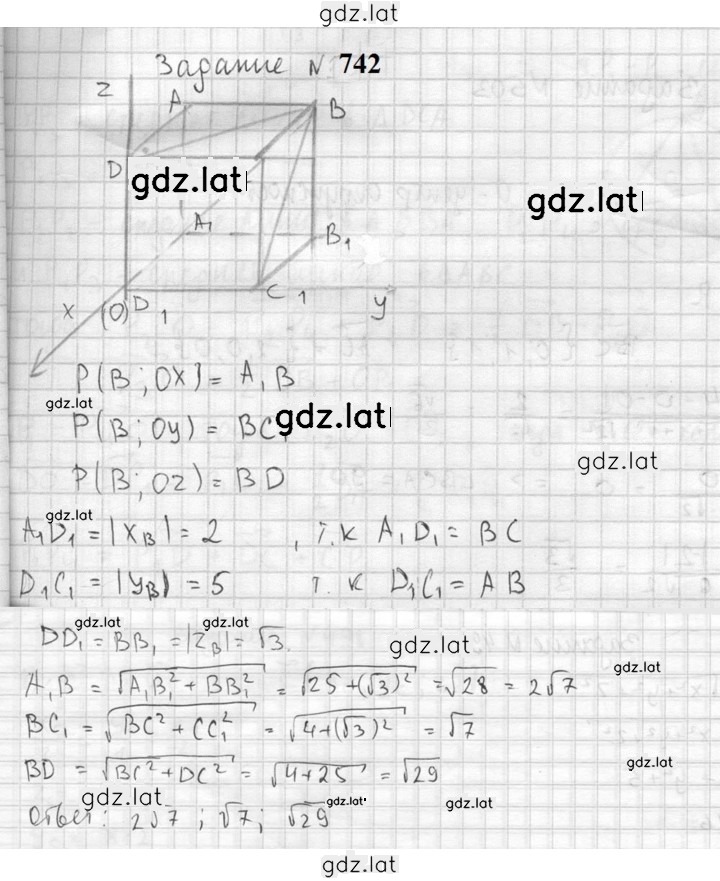 gdz.lat
Задание № 742
Z
A
B
D
gdz.lat
gdz.lat
A₁
B₁
X
(O)D₁
C₁
y
P(B; OX) = A₁B
gdz.lat
P(B; Oy) = BC₁
gdz.lat
P(B; Oz) = BD
gdz.lat
gdz.lat
A₁D₁ = |X_B| = 2 , т.к A₁D₁ = BC
D₁C₁ = |y_B| = 5 т. к D₁C₁ = AB
gdz.lat
gdz.lat
DD₁ = BB₁ = |Z_B| = √3.
gdz.lat
gdz.lat
A₁B = √(A₁B₁² + BB₁²) = √(25 + (√3)²) = √28 = 2√7
gdz.lat
BC₁ = √(BC² + CC₁²) = √(4 + (√3)²) = √7
BD = √(BC² + DC²) = √(4 + 25) = √29
gdz.lat
gdz.lat
gdz.lat
gdz.lat
Ответ: 2√7 ; √7; √29
gdz.lat